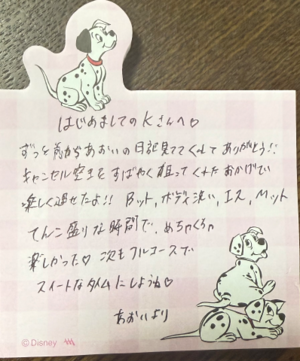 はじめましてのKさんへ♡
ずっと前からあおいの日記見ててくれてありがとう!!
キャンセル空きをすばやく狙ってくれたおかげで
楽しく過せたよ!! Bット,ボディ洗い,エス,Mット
てんこ盛りな時間で、めちゃくちゃ
楽しかった♡ 次もフルコースで
スイートなタイムにしようね♡
あおいより
©Disney